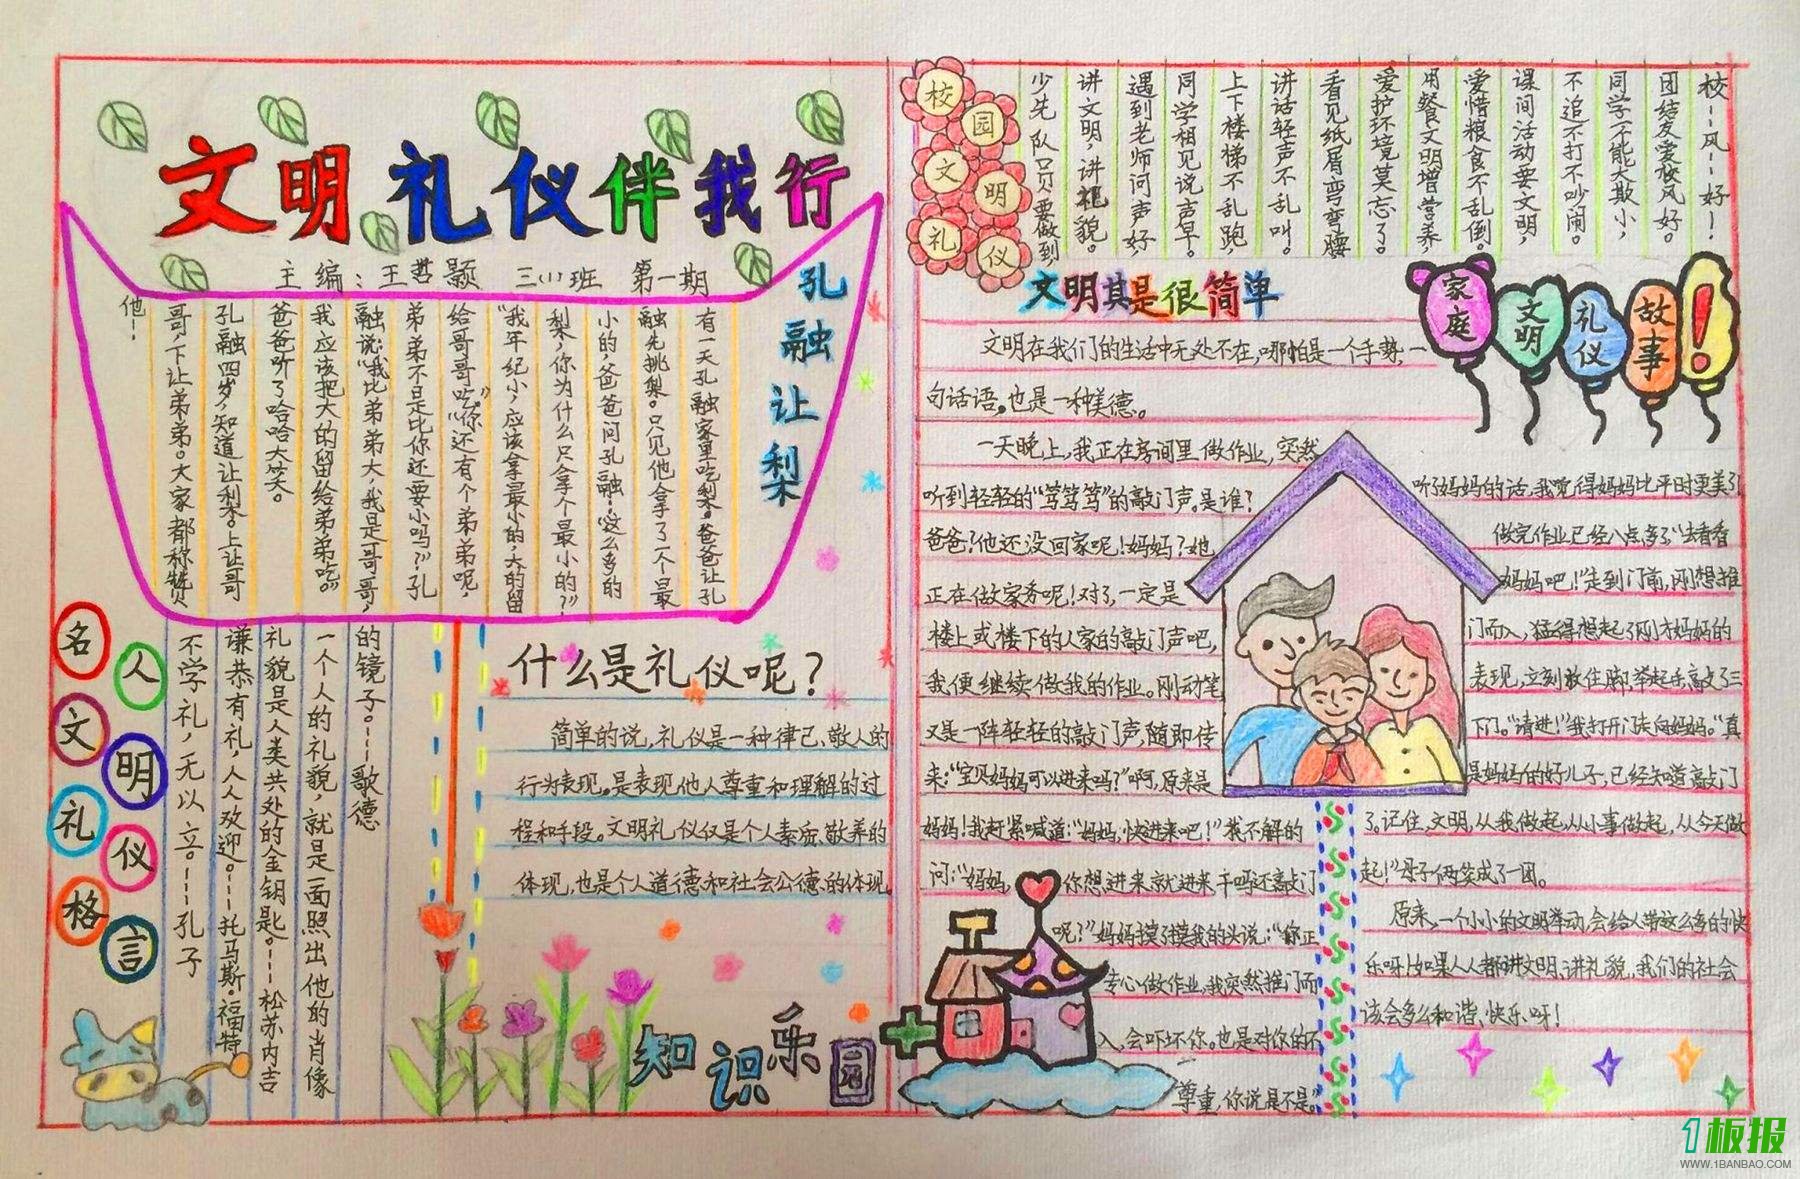 文明礼仪伴我行
主编：王哲颢 三(1)班 第一期
孔融让梨
有一天孔融家里吃梨。爸爸让孔
融先挑梨。只见他拿了一个最
小的，爸爸问孔融：“这么多的
梨，你为什么只拿个最小的？”
“我年纪小，应该拿最小的，大的留
给哥哥吃。”“你还有个弟弟呢，
弟弟不是比你还要小吗？”孔
融说：“我比弟弟大，我是哥哥，
我应该把大的留给弟弟吃。”
爸爸听了哈哈大笑。
孔融四岁，知道让梨。上让哥
哥，下让弟弟。大家都称赞
他！
名人文明礼仪格言
的镜子。——歌德
一个人的礼貌，就是一面照出他的肖像
礼貌是人类共处的金钥匙。——松苏内吉
谦恭有礼，人人欢迎。——托马斯·福特
不学礼，无以立。——孔子
什么是礼仪呢？
简单的说，礼仪是一种律己、敬人的
行为表现。是表现他人尊重和理解的过
程和手段。文明礼仪仅是个人素质、教养的
体现，也是个人道德和社会公德的体现。
知识乐园
校园文明礼仪
校--风--好--！
团结友爱校风好。
同学不能大欺小，
不追不打不吵闹。
课间活动要文明，
爱惜粮食不乱倒。
用餐文明增营养
爱护环境莫忘了。
看见纸屑弯弯腰
讲话轻声不乱叫。
上下楼梯不乱跑，
同学相见说声早。
遇到老师问声好，
讲文明，讲礼貌。
少先队员要做到，
文明其是很简单
家庭文明礼仪故事！
文明在我们的生活中无处不在，哪怕是一个手势，一
句话语。也是一种美德。
一天晚上，我正在房间里做作业，突然
听到轻轻的“笃笃笃”的敲门声。是谁？
爸爸？他还没回家呢！妈妈？她
正在做家务呢！对了，一定是
楼上或楼下的人家的敲门声吧，
我便继续做我的作业。刚动笔
又是一阵轻轻的敲门声，随即传
来：“宝贝妈妈可以进来吗？”啊，原来是
妈妈！我赶紧喊道：“妈妈，快进来吧！”我不解的
问：“妈妈，你想进来就进来干吗还敲门
呢？”妈妈摸了摸我的头说：“你正
专心做作业，我突然推门而
入，会吓坏你。也是对你的不
尊重，你说是不是。”
听了妈妈的话，我觉得妈妈比平时更美了
做完作业已经八点多了“去看看
妈妈吧！”走到门前，刚想推
门而入，猛得想起了刚才妈妈的
表现，立刻放住脚，举起手敲了三
下门。“请进！”我打开门走向妈妈。“真
是妈妈的好儿子，已经知道敲门
了。记住，文明，从我做起，从小事做起，从今天做
起！”母子俩笑成了一团。
原来，一个小小的文明举动，会给人带这么多的快
乐呀！如果人人都讲文明、讲礼貌，我们的社会
该会多么和谐、快乐呀！
1板报
WWW.1BANBAO.COM